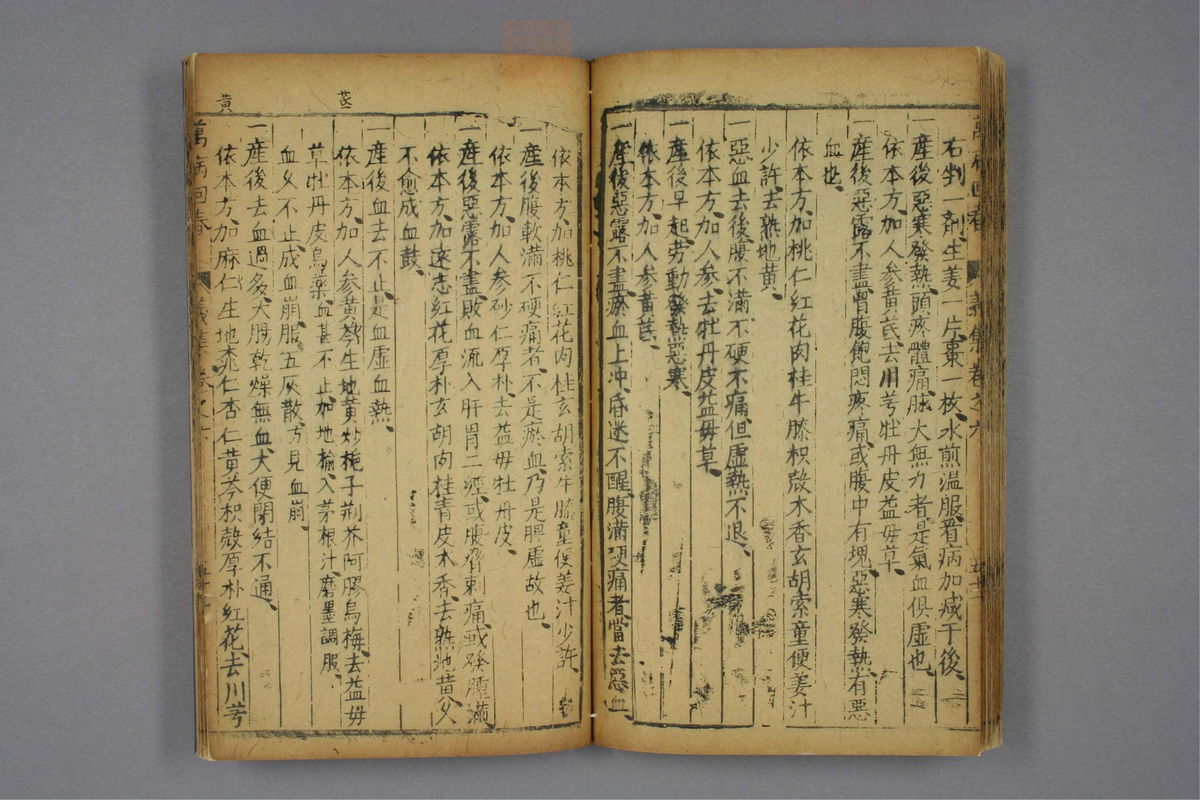 右剉一剤生姜一片棗一枚水煎温服看病加減于後
一産後惡寒發熱頭疼體痛脹大無力者是氣血俱虛也
依本方加人参黄芪去川芎牡丹皮益母草
一産後惡露不盡胷腹飽悶疼痛或腹中有塊惡寒發熱有惡
血也
依本方加桃仁紅花肉桂牛膝枳殻木香玄胡索童便姜汁
少許去熟地黄
一惡血去後腹不滿不硬不痛但虛熱不退
依本方加人参去牡丹皮益母草
一産後早起劳動發熱惡寒
依本方加人参黄芪
一産後惡露不盡瘀血上冲昏迷不醒腹滿硬痛者當去惡血
依本方加桃仁紅花肉桂玄胡索牛膝童便姜汁少許
一産後腹軟滿不硬痛者不是瘀血乃是脾虛故也
依本方加人参砂仁厚朴去益母牡丹皮
一産後惡露不盡敗血流入肝胃二經或腹脅刺痛或發腫滿
依本方加遠志紅花厚朴玄胡肉桂青皮木香去熟地黄久
不愈成血鼓
一産後血去不止是血虛血熱
依本方加人参黄芩生地黄炒栀子荆芥阿膠烏梅去益母
草牡丹皮烏藥血甚不止加地榆入茅根汁磨墨調服
血久不止成血崩服五灰散方見血崩
一産後去血過多大膓乾燥無血大便閉結不通
依本方加麻仁生地桃仁杏仁黄芩枳殻厚朴紅花去川芎
萬病回春 義集卷之六
芪
黄